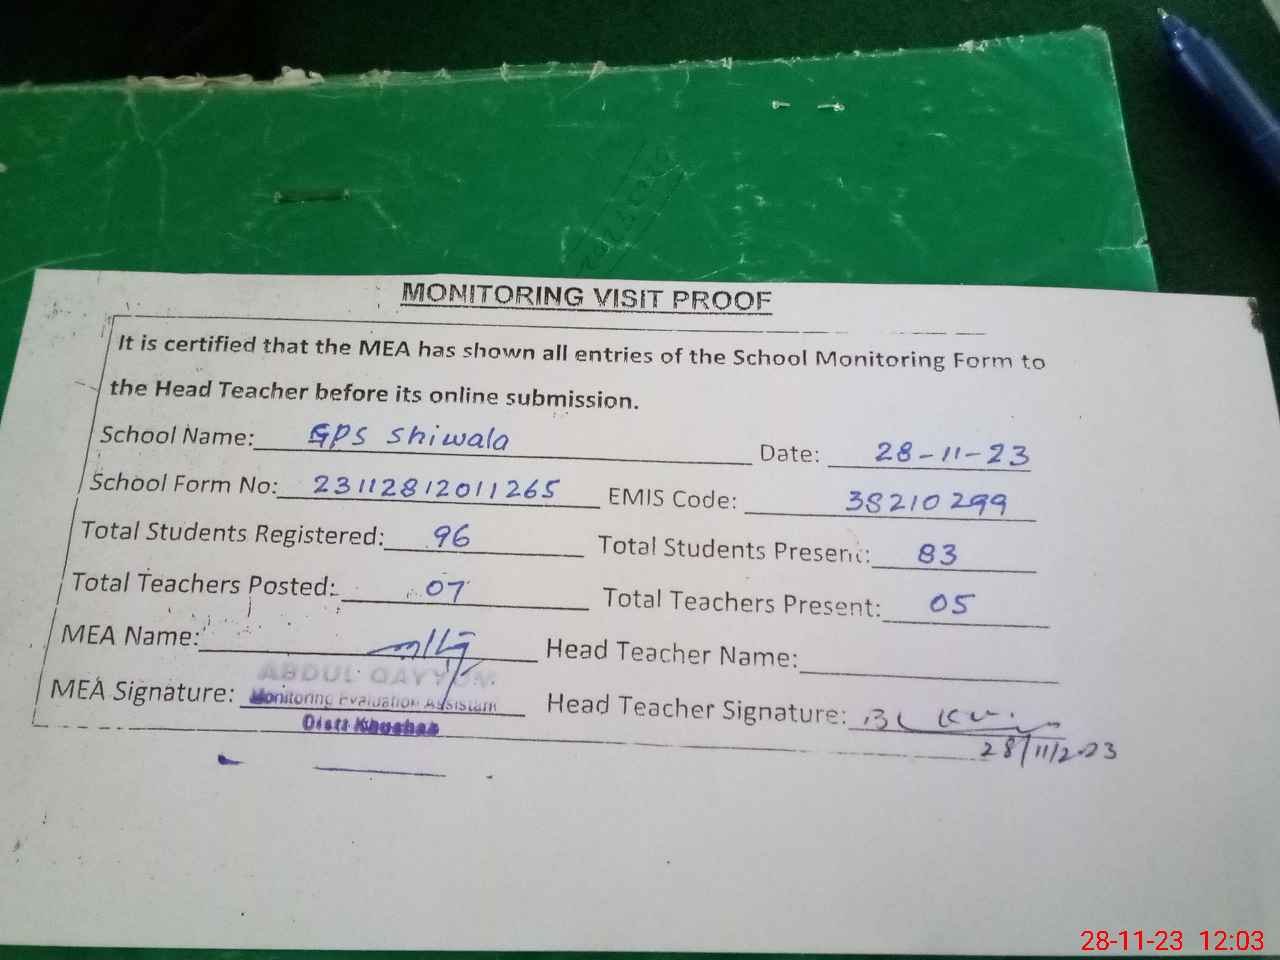 MONITORING VISIT PROOF
It is certified that the MEA has shown all entries of the School Monitoring Form to
the Head Teacher before its online submission.
School Name: GPS Shiwala Date: 28-11-23
School Form No: 23112812011265 EMIS Code: 38210299
Total Students Registered: 96 Total Students Present: 83
Total Teachers Posted: 07 Total Teachers Present: 05
MEA Name: Head Teacher Name:
ABDUL QAYYUM
MEA Signature: Monitoring Evaluation Assistant Head Teacher Signature:
Distt Khushab
28/11/2023
28-11-23 12:03